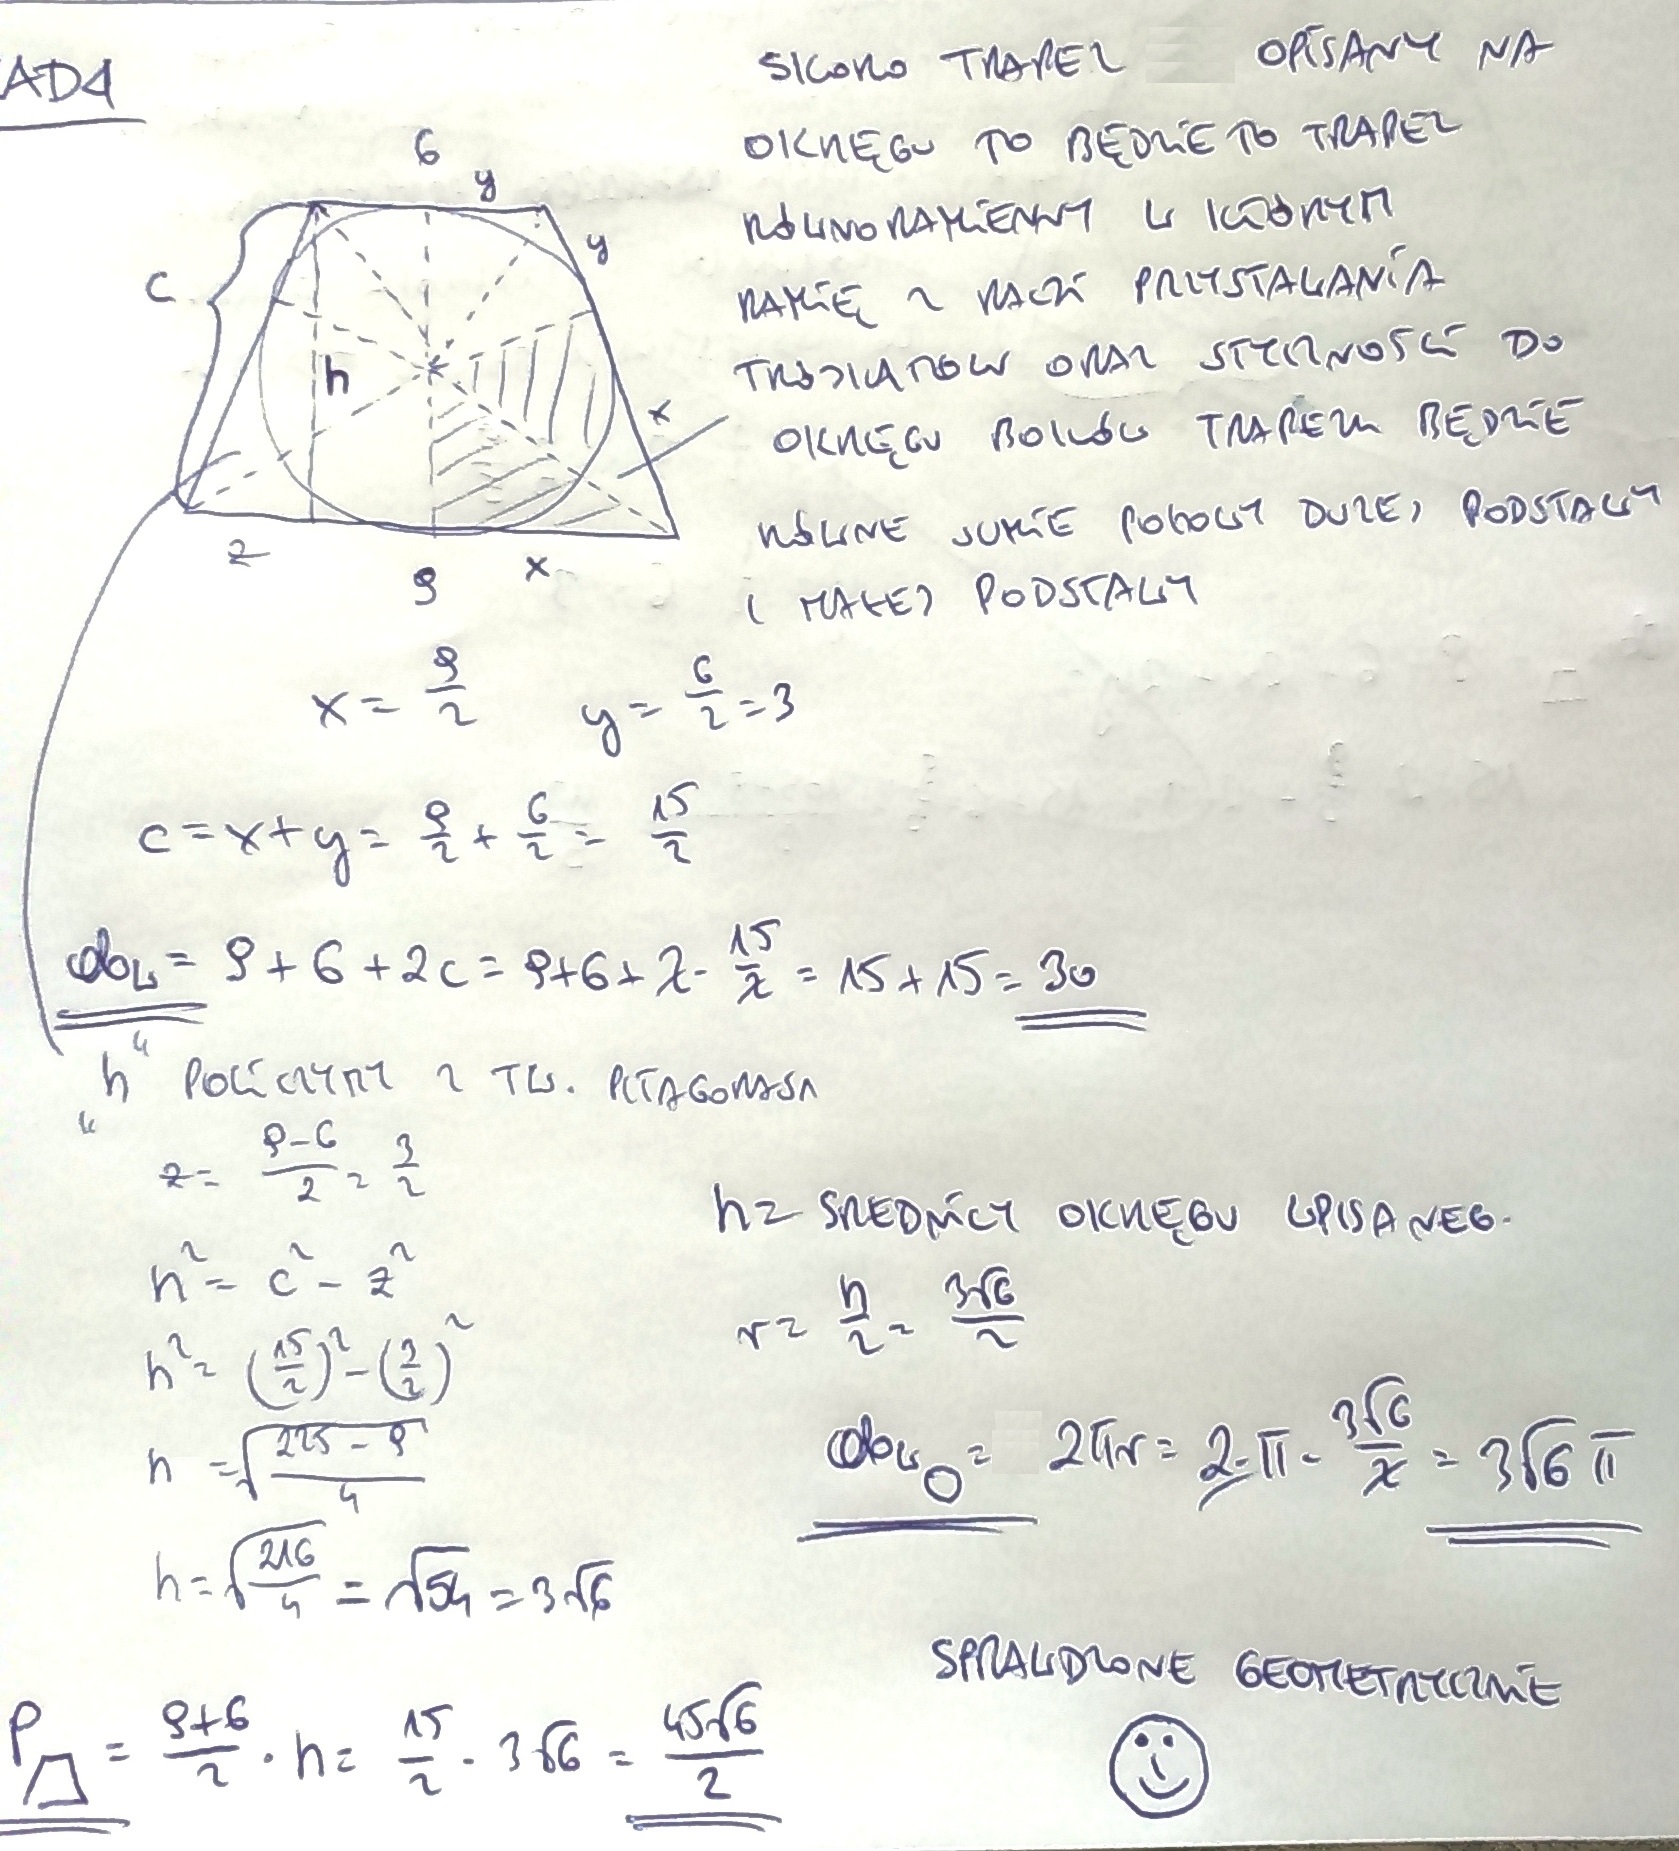 ZAD4
SKORO TRAPEZ OPISANY NA
OKRĘGU TO BĘDZIE TO TRAPEZ
RÓWNORAMIENNY W KTÓRYM
RAMIĘ Z RACJI PRZYSTAWANIA
TRÓJKĄTÓW ORAZ STYCZNOŚCI DO
OKRĘGU BOKÓW TRAPEZU BĘDZIE
RÓWNE SUMIE POŁOWY DUŻEJ PODSTAWY
I MAŁEJ PODSTAWY
6
y
y
c
h
x
z
9
x
x = 9/2 y = 6/2 = 3
c = x + y = 9/2 + 6/2 = 15/2
obw = 9 + 6 + 2c = 9 + 6 + 2 · 15/2 = 15 + 15 = 30
"h" POLICZYMY Z TW. PITAGORASA
z = (9-6)/2 = 3/2
h² = c² - z²
h² = (15/2)² - (3/2)²
h = √((225 - 9)/4)
h = √(216/4) = √54 = 3√6
P = (9+6)/2 · h = 15/2 · 3√6 = 45√6/2
h = ŚREDNICY OKRĘGU WPISANEG.
r = h/2 = 3√6/2
obw○ = 2πr = 2 · π · 3√6/2 = 3√6 π
SPRAWDZONE GEOMETRYCZNIE